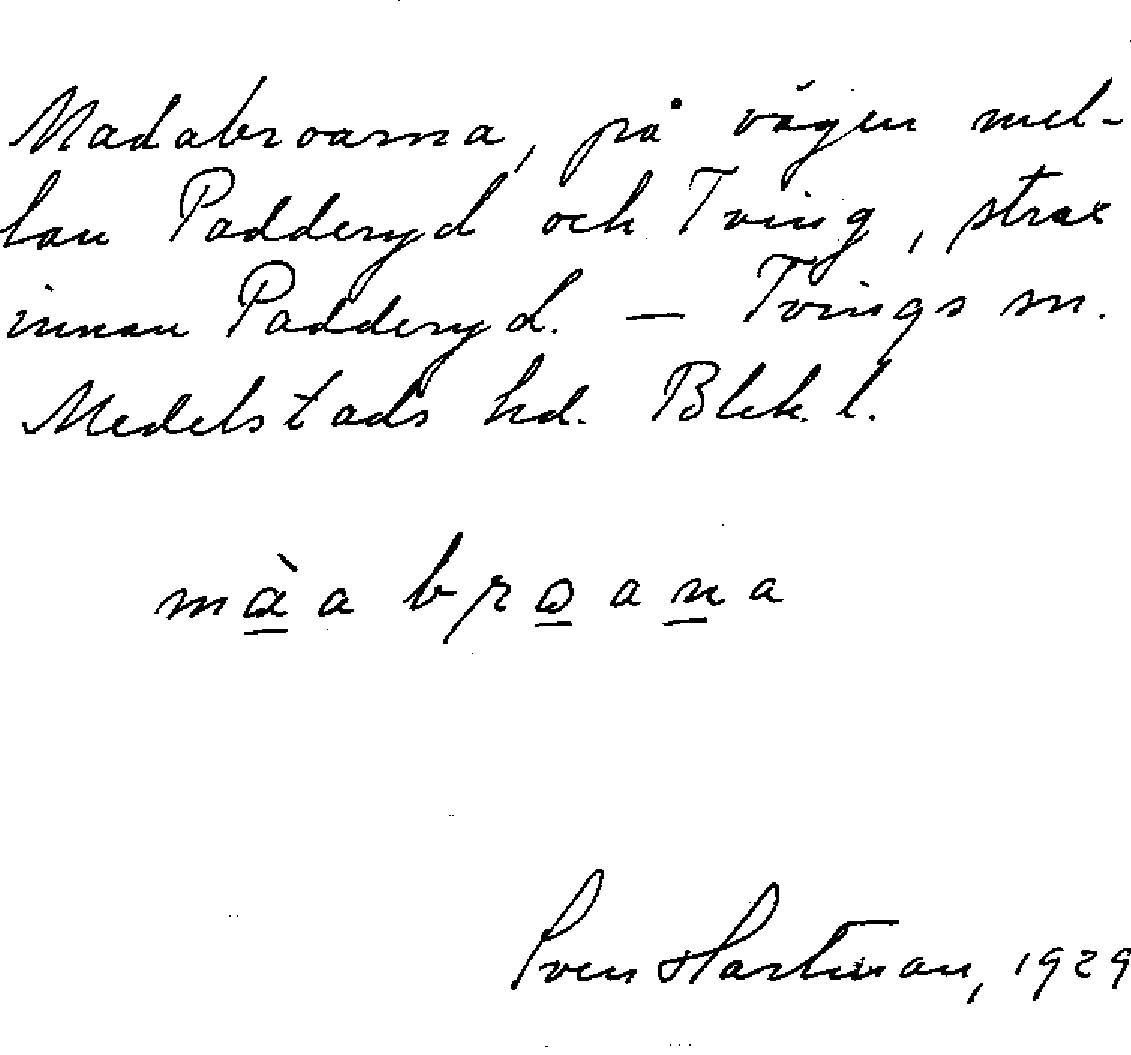 Madabroarna, på vägen mel-
lan Padderyd och Tving, strax
innan Padderyd. — Tvings sn.
Medelstads hd. Blek. l.
màa broana
Sven Hartman, 1929